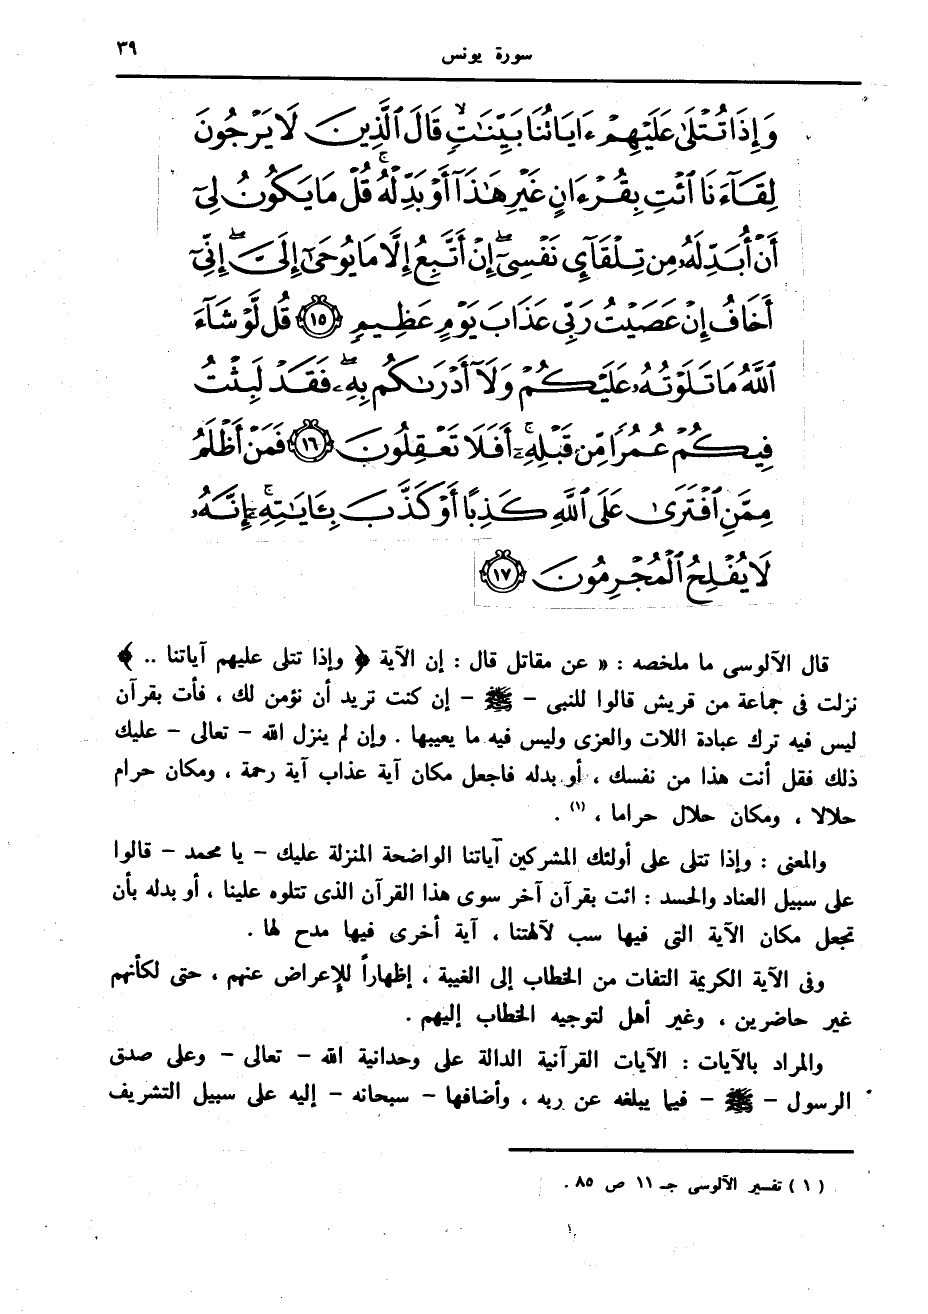 سورة يونس ٣٩
وَإِذَا تُتْلَىٰ عَلَيْهِمْ ءَايَاتُنَا بَيِّنَـٰتٍۙ قَالَ ٱلَّذِينَ لَا يَرْجُونَ
لِقَآءَنَا ٱئْتِ بِقُرْءَانٍ غَيْرِ هَـٰذَآ أَوْ بَدِّلْهُۚ قُلْ مَا يَكُونُ لِىٓ
أَنْ أُبَدِّلَهُۥ مِن تِلْقَآئِ نَفْسِىٓۖ إِنْ أَتَّبِعُ إِلَّا مَا يُوحَىٰٓ إِلَىَّۖ إِنِّىٓ
أَخَافُ إِنْ عَصَيْتُ رَبِّى عَذَابَ يَوْمٍ عَظِيمٍ ١٥ قُل لَّوْ شَآءَ
ٱللَّهُ مَا تَلَوْتُهُۥ عَلَيْكُمْ وَلَآ أَدْرَىٰكُم بِهِۦۖ فَقَدْ لَبِثْتُ
فِيكُمْ عُمُرًا مِّن قَبْلِهِۦٓۚ أَفَلَا تَعْقِلُونَ ١٦ فَمَنْ أَظْلَمُ
مِمَّنِ ٱفْتَرَىٰ عَلَى ٱللَّهِ كَذِبًا أَوْ كَذَّبَ بِـَٔايَـٰتِهِۦٓۚ إِنَّهُۥ
لَا يُفْلِحُ ٱلْمُجْرِمُونَ ١٧
قال الآلوسى ما ملخصه : « عن مقاتل قال : إن الآية ﴿ وإذا تتلى عليهم آياتنا .. ﴾
نزلت فى جماعة من قريش قالوا للنبى - ﷺ - إن كنت تريد أن نؤمن لك ، فأت بقرآن
ليس فيه ترك عبادة اللات والعزى وليس فيه ما يعيبها . وإن لم ينزل الله - تعالى - عليك
ذلك فقل أنت هذا من نفسك ، أو بدله فاجعل مكان آية عذاب آية رحمة ، ومكان حرام
حلالا ، ومكان حلال حراما ، (١) .
والمعنى : وإذا تتلى على أولئك المشركين آياتنا الواضحة المنزلة عليك - يا محمد - قالوا
على سبيل العناد والحسد : ائت بقرآن آخر سوى هذا القرآن الذى تتلوه علينا ، أو بدله بأن
تجعل مكان الآية التى فيها سب لآلهتنا ، آية أخرى فيها مدح لها .
وفى الآية الكريمة التفات من الخطاب إلى الغيبة ، إظهاراً للإعراض عنهم ، حتى لكأنهم
غير حاضرين ، وغير أهل لتوجيه الخطاب إليهم .
والمراد بالآيات : الآيات القرآنية الدالة على وحدانية الله - تعالى - وعلى صدق
الرسول - ﷺ - فيما يبلغه عن ربه ، وأضافها - سبحانه - إليه على سبيل التشريف
( ١ ) تفسير الآلوسى جـ ١١ ص ٨٥ .